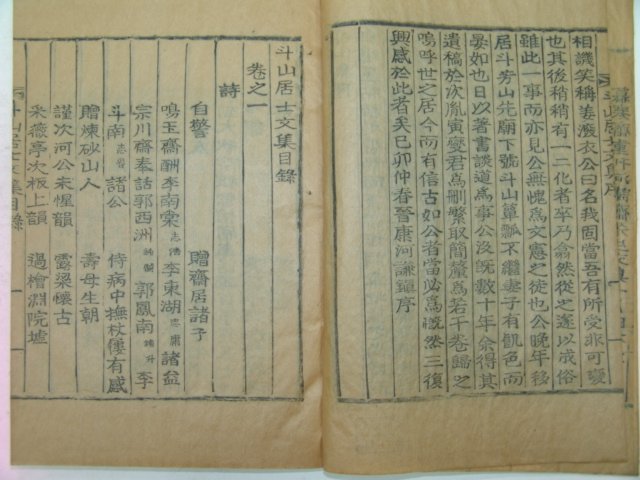 相譏笑稱姜潑衣公曰名我固當吾有所受非可變
也其後稍稍有一二化者卒乃翕然從之遂以成俗
雖此一事而亦見公無愧爲文憲之徒也公晩年移
居斗芳山先廟下號斗山簞瓢不繼妻子有飢色而
晏如也日以著書談道爲事公沒旣數十年余得其
遺稿於次胤寅燮君爲刪繁取簡釐爲若干卷歸之
嗚呼世之居今而有信古如公者當必爲慨然三復
興感於此者矣己卯仲春晉康河謙鎭序
斗山居士文集目錄
卷之一
詩
自警 贈齋居諸子
鳴玉齋酬李南棠 李東湖 諸益
宗川齋奉話郭西洲 郭鳳南 李
斗南 諸公 侍病中撫杖僂有感
贈煉砂山人 壽母生朝
謹次河公未惺韻 露梁懷古
采薇亭次板上韻 過檜淵院墟
斗山居士文集目錄